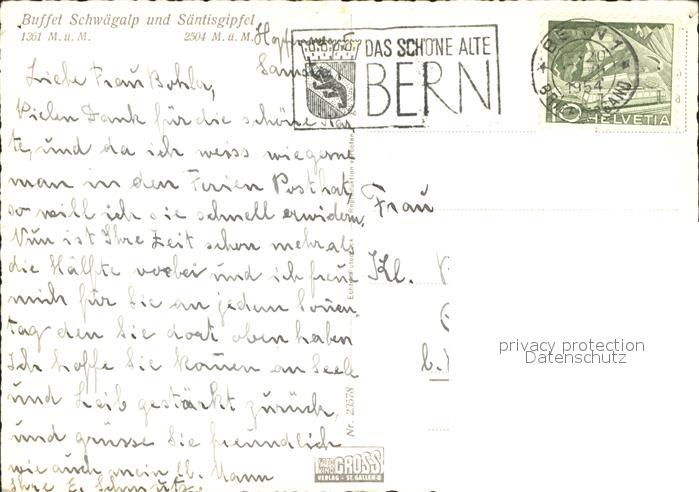 Buffet Schwägalp und Säntisgipfel
1361 M. ü. M. 2504 M. ü. M.
DAS SCHÖNE ALTE
BERN
BERN 1
1954
BRIEFVERSAND
10 HELVETIA
Samstag
Liebe Frau Bohler,
Vielen Dank für die schöne Kar
te, und da ich weiss wie gerne
man in den Ferien Post hat,
so will ich sie schnell erwidern,
Nun ist Ihre Zeit schon mehr als
die Hälfte vorbei und ich freue
mich für Sie an jedem Sonnen,
tag den Sie dort oben haben
Ich hoffe Sie kommen an Seele
und Leib gestärkt zurück,
und grüsse Sie freundlich
wie auch mein lb. Mann
Ihre E. Schmutz
Frau
Kl.
privacy protection
Datenschutz
Nr. 23578
FOTO GROSS
VERLAG - ST. GALLEN